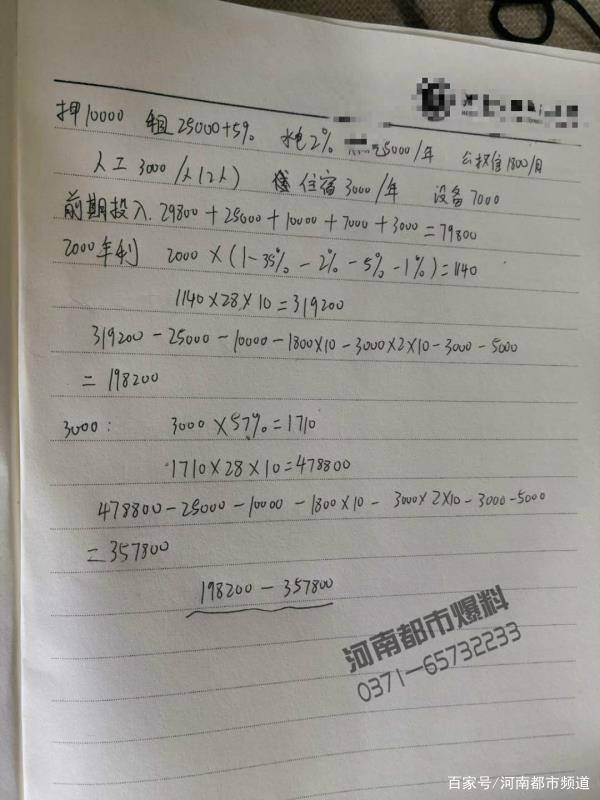 押10000 租25000+5% 水电2% 25000/年 公摊住1800/月
人工3000/人(2人) 住宿3000/年 设备7000
前期投入.29800+25000+10000+7000+3000=79800
2000年利 2000×(1-35%-2%-5%-1%)=1140
1140×28×10=319200
319200-25000-10000-1800×10-3000×2×10-3000-5000
=198200
3000: 3000×57%=1710
1710×28×10=478800
478800-25000-10000-1800×10-3000×2×10-3000-5000
=357800
198200-357800
河南都市爆料
0371-65732233
百家号/河南都市频道